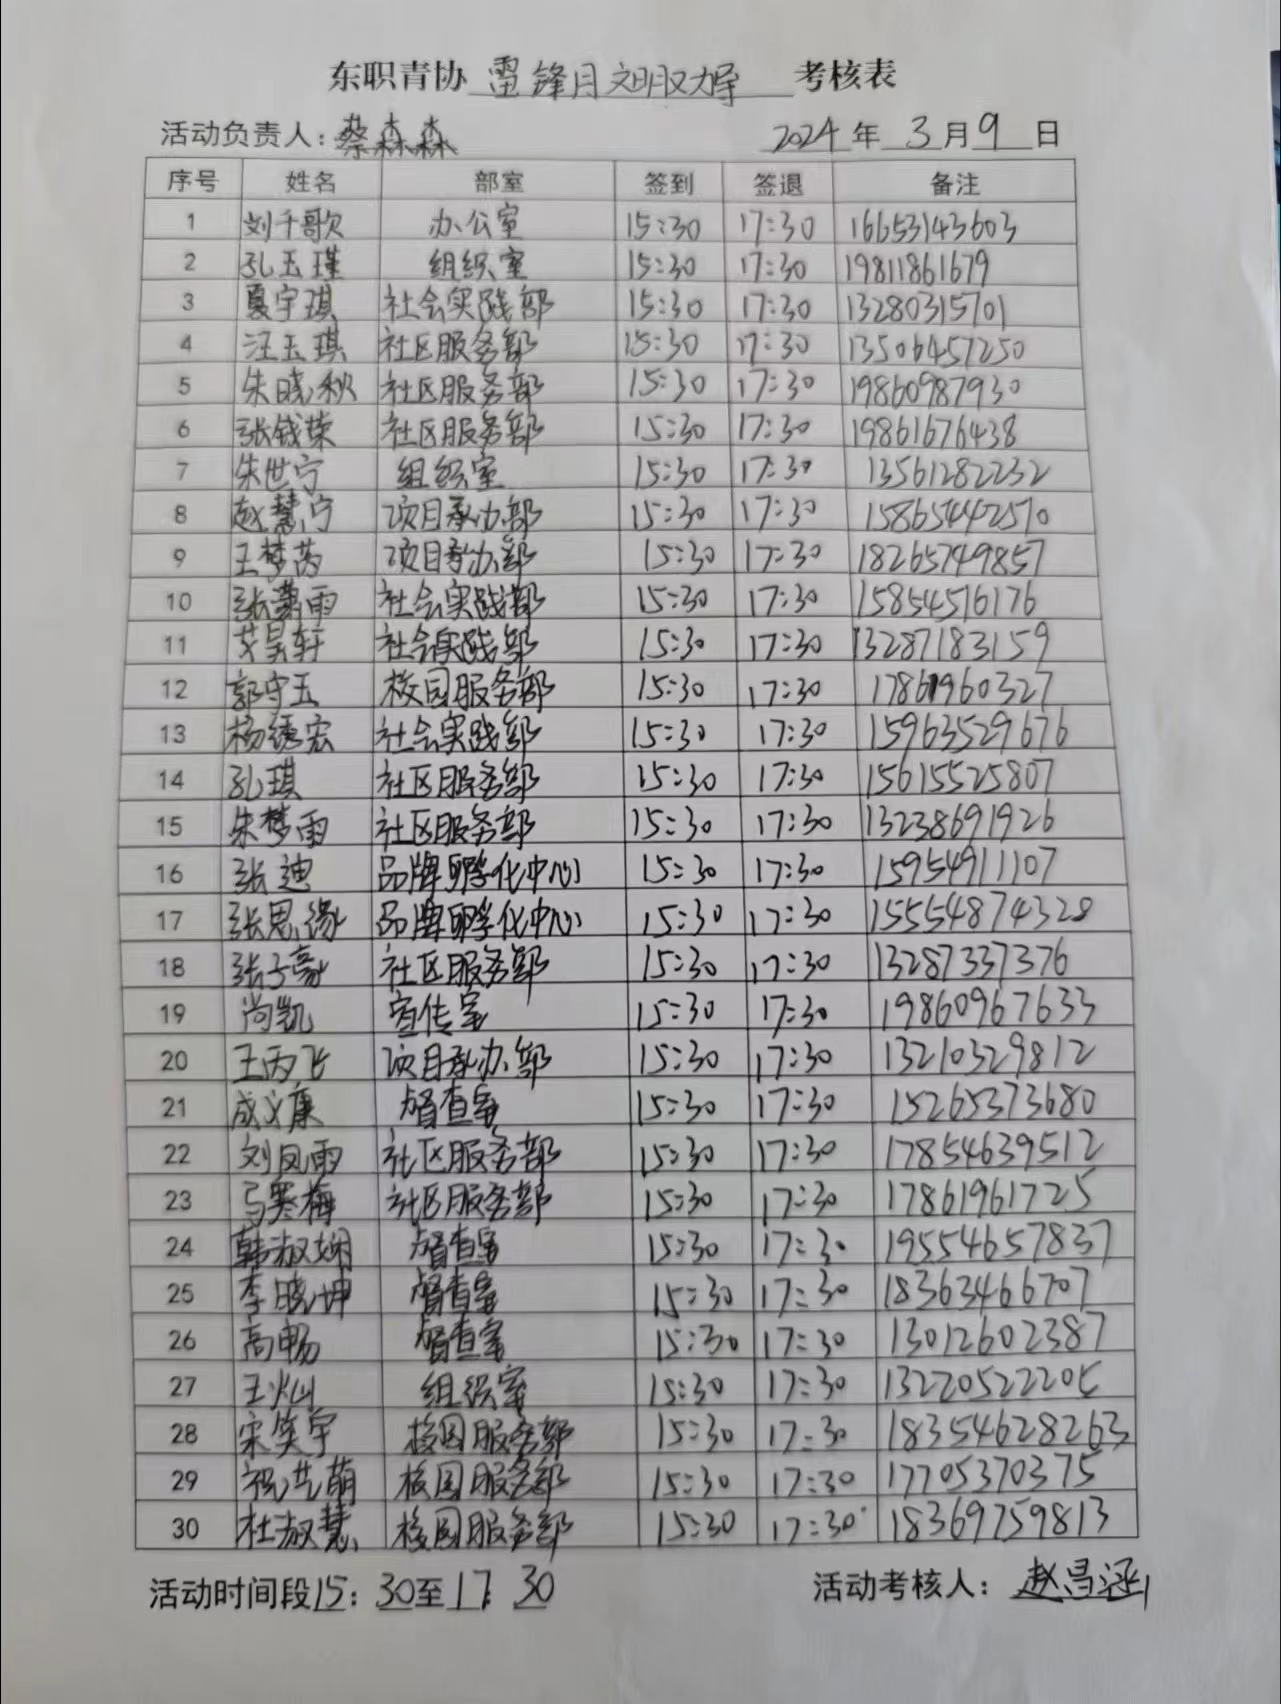 东职青协 雷锋月文明服务劝导 考核表
活动负责人：蔡森森 2024 年 3 月 9 日
序号 姓名 部室 签到 签退 备注
1 刘千歌 办公室 15:30 17:30 16653143603
2 孔玉瑾 组织室 15:30 17:30 19811861679
3 夏宇琪 社会实践部 15:30 17:30 13280315701
4 汪玉琪 社区服务部 15:30 17:30 13506457250
5 朱晓秋 社区服务部 15:30 17:30 19860987930
6 张钱荣 社区服务部 15:30 17:30 19861676438
7 朱世宁 组织室 15:30 17:30 13561282232
8 赵慧宁 项目承办部 15:30 17:30 15865442570
9 王梦芮 项目承办部 15:30 17:30 18265749857
10 张萧雨 社会实践部 15:30 17:30 15854516176
11 艾昊轩 社会实践部 15:30 17:30 13287183159
12 郭守玉 校园服务部 15:30 17:30 17861960327
13 杨绣宏 社会实践部 15:30 17:30 15963529676
14 孔琪 社区服务部 15:30 17:30 15615525807
15 朱梦雨 社区服务部 15:30 17:30 13238691926
16 张迪 品牌孵化中心 15:30 17:30 15954911107
17 张思缘 品牌孵化中心 15:30 17:30 15554874328
18 张子豪 社区服务部 15:30 17:30 13287337376
19 尚凯 宣传室 15:30 17:30 19860967633
20 王丙飞 项目承办部 15:30 17:30 13210329812
21 成义康 督查室 15:30 17:30 15265373680
22 刘凤雨 社区服务部 15:30 17:30 17854639512
23 马寒梅 社区服务部 15:30 17:30 17861961725
24 韩淑娴 督查室 15:30 17:30 19554657837
25 李晓坤 督查室 15:30 17:30 18363466707
26 高畅 督查室 15:30 17:30 13012602387
27 王灿 组织室 15:30 17:30 13220522205
28 宋笑宇 校园服务部 15:30 17:30 18354628263
29 祝艺萌 校园服务部 15:30 17:30 17705370375
30 杜淑慧 校园服务部 15:30 17:30 18369759813
活动时间段15：30至17：30 活动考核人：赵昌涵